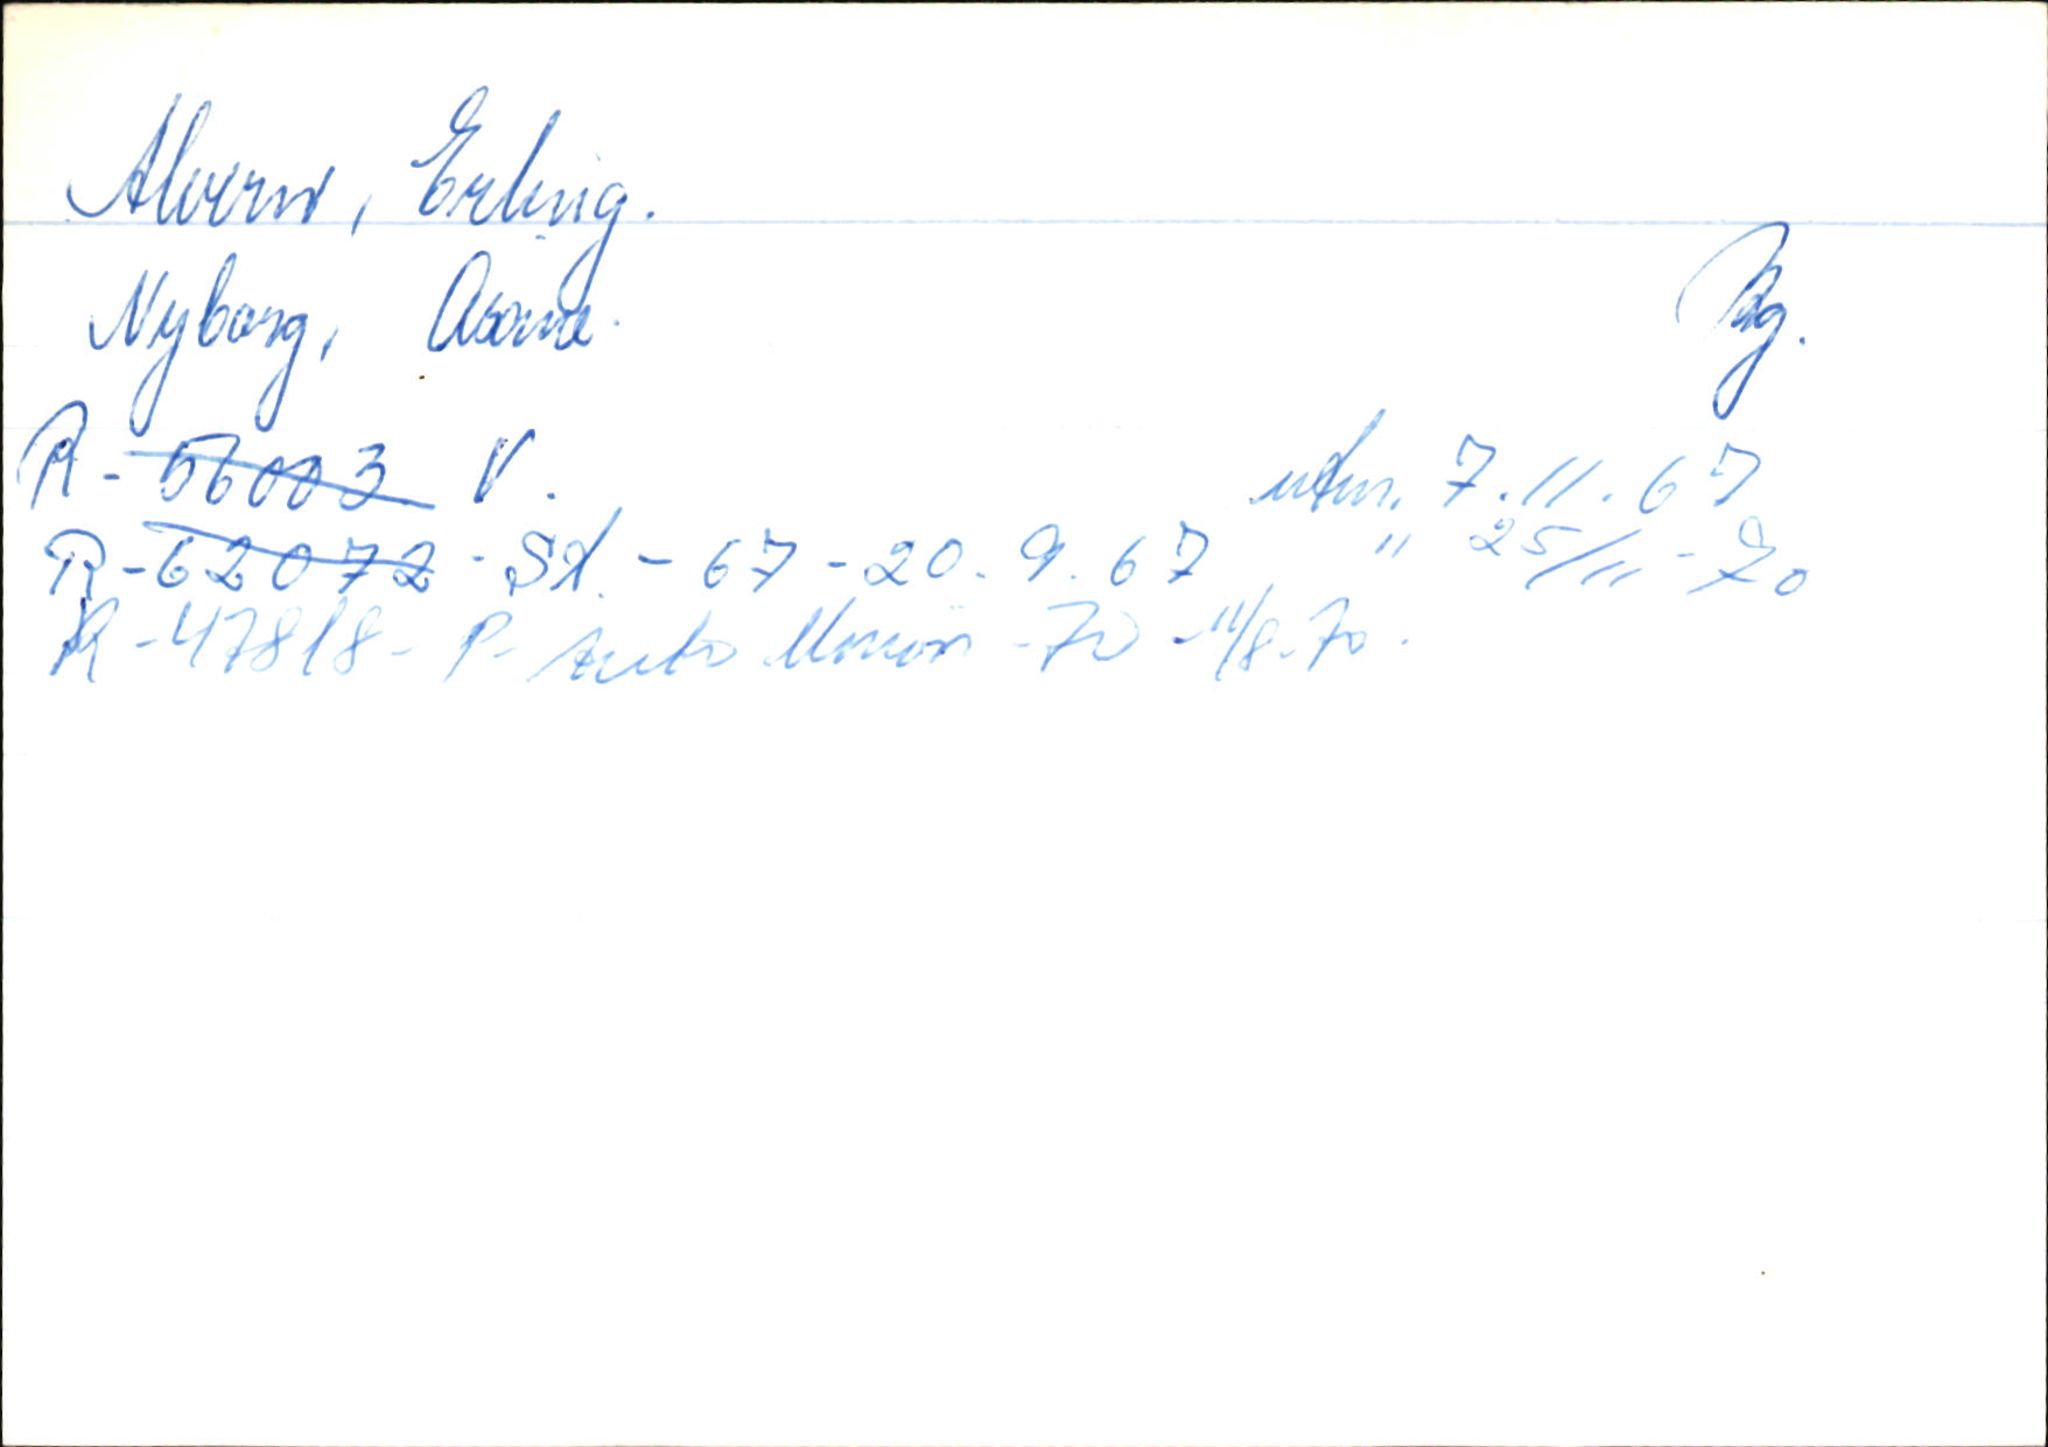 Alvern, Erling.
Nyborg, Åsane. Bg.
R-56003 V. utm. 7.11.67
R-62072 - Sk. - 67 - 20.9.67 " 25/11-70
R-47818- P- Auto Union -70 -11/8-70.